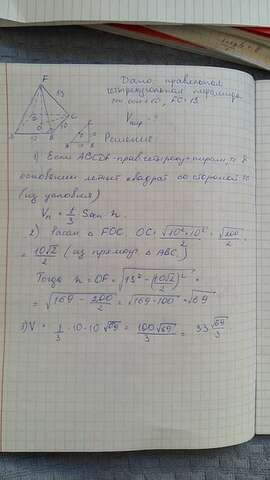 F
13
C
D
O
10
Дано: правильная
четырехугольная пирамида
FC = 13
V пир - ?
Решение:
1) Если ABCDF - прав. четыреху. пирам, то в
основании лежит квадрат со стороной 10
(из условия)
Vп = 1/3 Sосн h.
2) Рассм △ FOC OC = √(10²+10²)/2 = √200/2 =
= 10√2/2 (из прямоуг △ ABC)
Тогда h = OF = √(13² - (10√2/2)²) =
= √(169 - 200/2) = √(169-100) = √69
3) V = 1/3 · 10 · 10 √69 = 100√69/3 = 33 √69/3